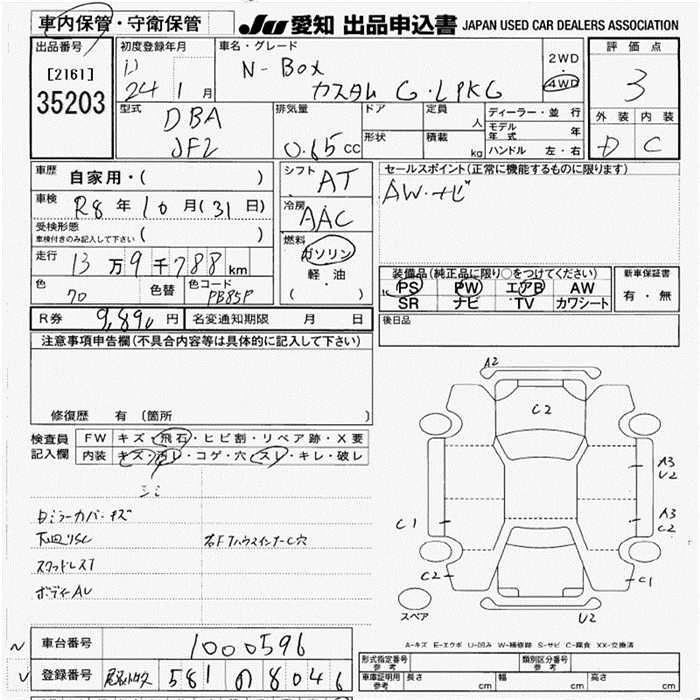 車内保管・守衛保管
JU 愛知 出品申込書 JAPAN USED CAR DEALERS ASSOCIATION
出品番号
[2161]
35203
初度登録年月
24 1 月
車名・グレード
N-BOX
カスタム G・LPKG
2WD
4WD
評価点
3
外装 内装
D C
型式
DBA
JF2
排気量
0.65 cc
ドア
形状
定員 人
積載 kg
ディーラー・並行
モデル年式 年
ハンドル 左・右
車歴
自家用・( )
車検
R8 年 10 月 (31 日)
受検形態
車検付きのみ記入して下さい ( )
走行
13 万 9 千 788 km
色
70
色替
色コード
PB85P
シフト
AT
冷房
AAC
燃料
ガソリン
軽油
( )
セールスポイント(正常に機能するものに限ります)
AW・ナビ
装備品(純正品に限り○をつけてください)
PS PW エアB AW
SR ナビ TV カワシート
新車保証書
有・無
R券 9,890 円
名変通知期限 月 日
後日品
注意事項申告欄(不具合内容等は具体的に記入して下さい)
修復歴 有 (箇所 )
検査員
記入欄
FW キズ・飛石・ヒビ割・リペア跡・X要
内装 キズ・汚レ・コゲ・穴・スレ・キレ・破レ
シミ
ミラーカバーキズ
下回りSC
右Fフハウスインナー穴
スタッドレスT
ボディーAU
A2
C2
A3
U2
A3
C2
C1
C2
C1
U2
スペア
A-キズ E-エクボ U-凹み W-補修跡 S-サビ C-腐食 XX-交換済
車台番号 1000596
登録番号 581 の 8046
形式指定番号
参考
類別区分番号
参考
車庫証明用
参考
長さ cm
幅 cm
高さ cm